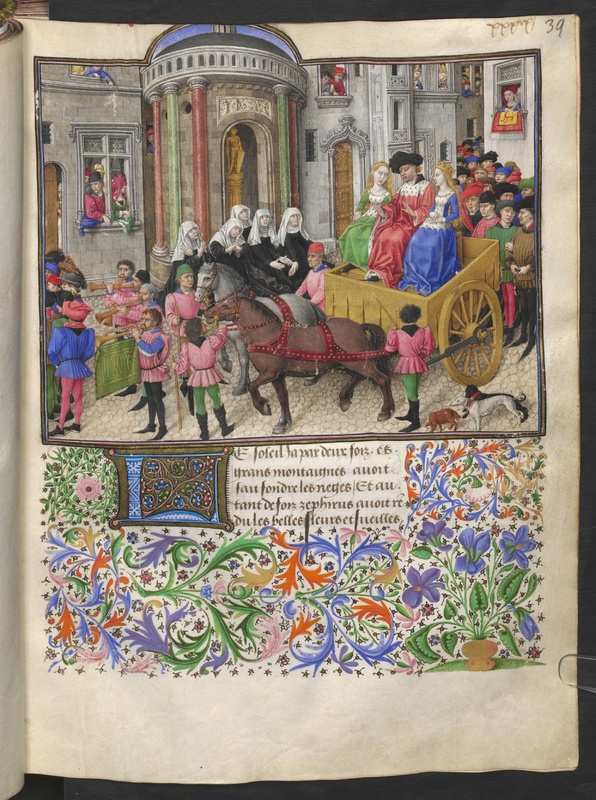 39
E soleil Ja par deux foiz. es
grans montaignes avoit
fait fondre les neges / Et au
tant de foiz zephirus avoit r
du les belles fleurs et fueilles